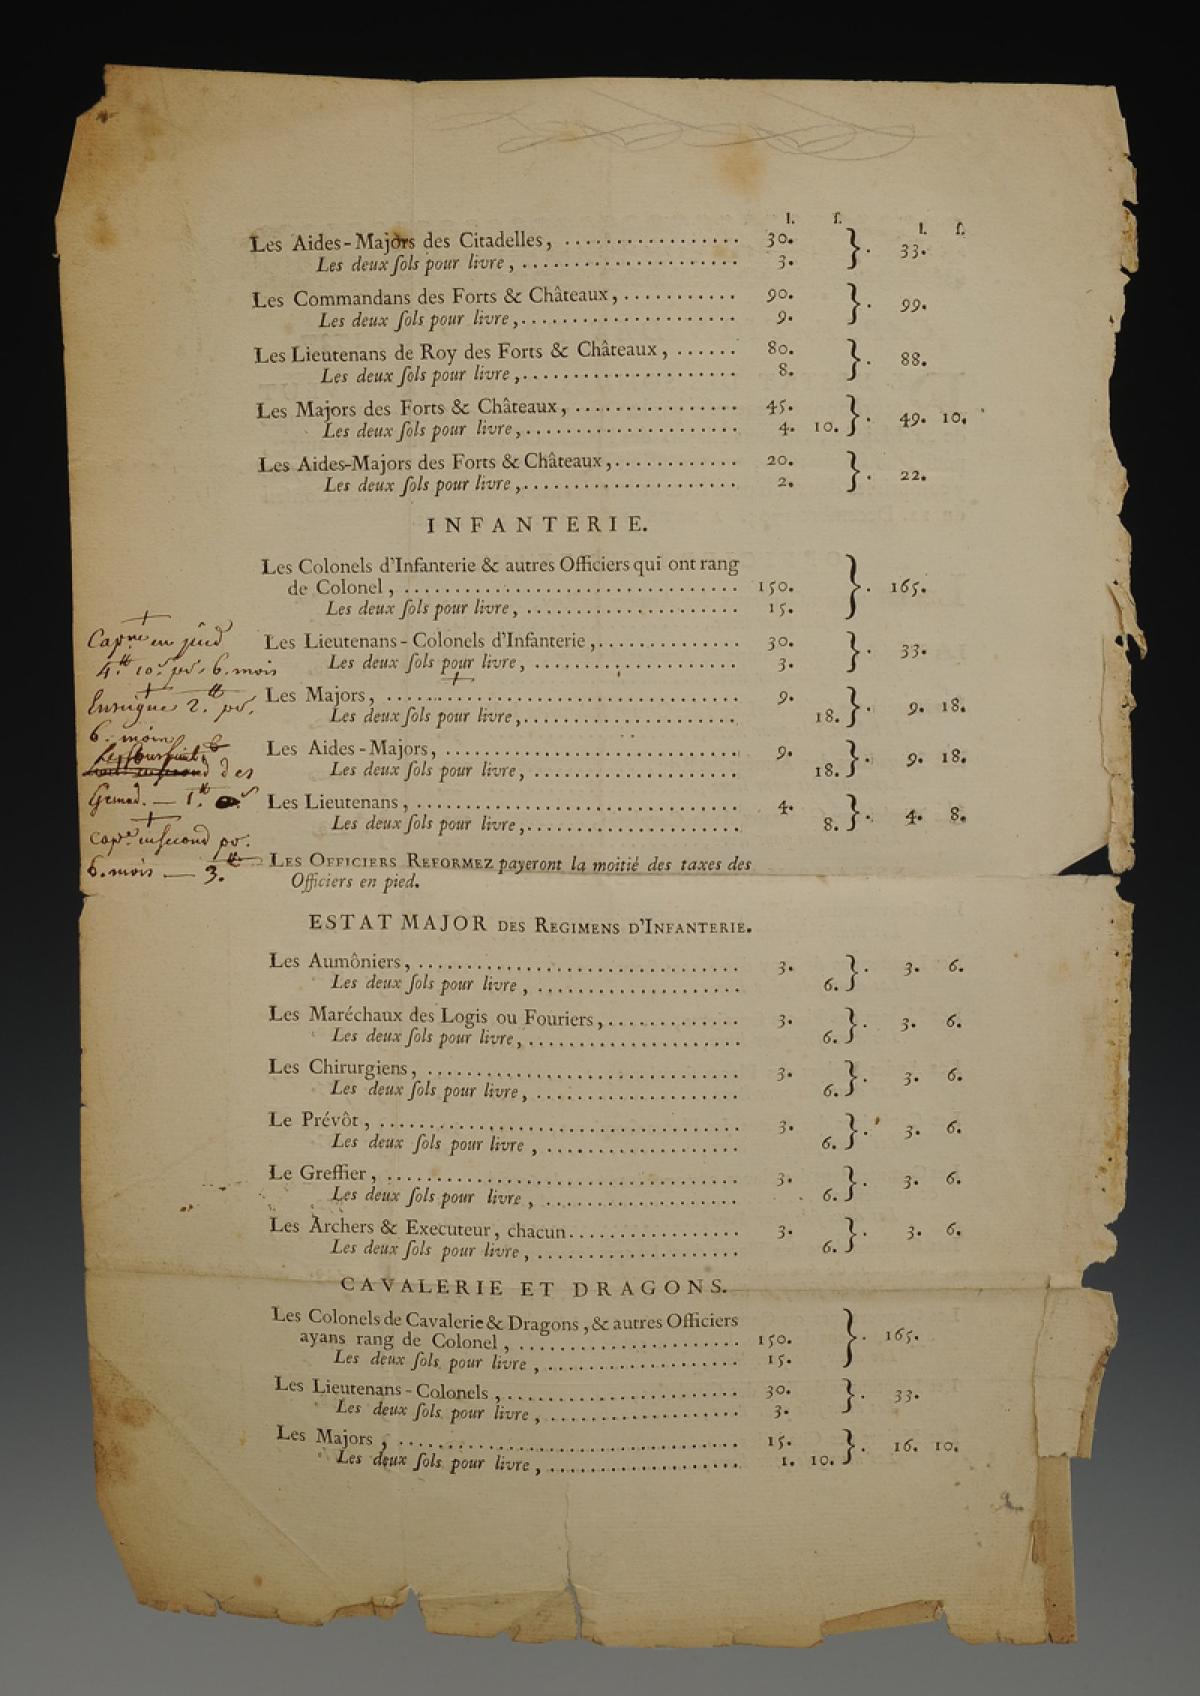 l. ſ. l. ſ.
Les Aides-Majors des Citadelles, .................. 30. } . 33.
Les deux ſols pour livre, ...................... 3.
Les Commandans des Forts & Châteaux, ........... 90. } . 99.
Les deux ſols pour livre, ...................... 9.
Les Lieutenans de Roy des Forts & Châteaux, ...... 80. } . 88.
Les deux ſols pour livre, ...................... 8.
Les Majors des Forts & Châteaux, ................. 45. } . 49. 10.
Les deux ſols pour livre, ...................... 4. 10.
Les Aides-Majors des Forts & Châteaux, ............. 20. } . 22.
Les deux ſols pour livre, ...................... 2.
INFANTERIE.
Les Colonels d'Infanterie & autres Officiers qui ont rang
de Colonel, .................................. 150. } . 165.
Les deux ſols pour livre, ...................... 15.
Les Lieutenans-Colonels d'Infanterie, ............... 30. } . 33.
Les deux ſols pour livre, ..................... 3.
Les Majors, .................................... 9. } . 9. 18.
Les deux ſols pour livre, ...................... 18.
Les Aides-Majors, .............................. 9. } . 9. 18.
Les deux ſols pour livre, ..................... 18.
Les Lieutenans, ................................. 4. } . 4. 8.
Les deux ſols pour livre, ...................... 8.
Les Officiers Reformez payeront la moitié des taxes des
Officiers en pied.
Cap.ne en pied
4.tt 10.s pr. 6. mois
Enseigne 2.tt pr.
6. mois
des
Grenad. — 1.tt
Cap.e en second pr.
6. mois — 3.tt
ESTAT MAJOR des Regimens d'Infanterie.
Les Aumôniers, ................................. 3. } . 3. 6.
Les deux ſols pour livre, ..................... 6.
Les Maréchaux des Logis ou Fouriers, .............. 3. } . 3. 6.
Les deux ſols pour livre, ..................... 6.
Les Chirurgiens, ................................ 3. } . 3. 6.
Les deux ſols pour livre, ..................... 6.
Le Prévôt, ..................................... 3. } . 3. 6.
Les deux ſols pour livre, ..................... 6.
Le Greffier, .................................... 3. } . 3. 6.
Les deux ſols pour livre, ..................... 6.
Les Archers & Executeur, chacun.................. 3. } . 3. 6.
Les deux ſols pour livre, ..................... 6.
CAVALERIE ET DRAGONS.
Les Colonels de Cavalerie & Dragons, & autres Officiers
ayans rang de Colonel, ...................... 150. } . 165.
Les deux ſols pour livre, .................... 15.
Les Lieutenans-Colonels, ........................ 30. } . 33.
Les deux ſols pour livre, .................... 3.
Les Majors, ................................... 15. } . 16. 10.
Les deux ſols pour livre, .................... 1. 10.